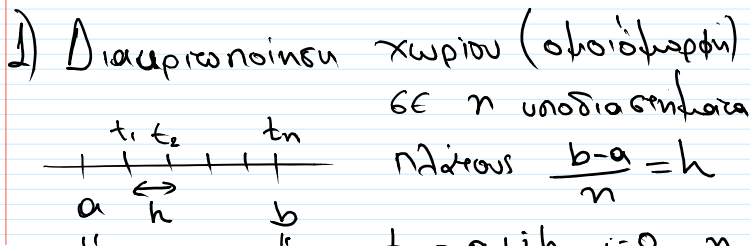 1) Διακριτοποίηση χωρίου (ομοιόμορφη)
σε n υποδιαστήματα
t₁ t₂ tₙ
πλάτους (b-a)/n = h
a h b